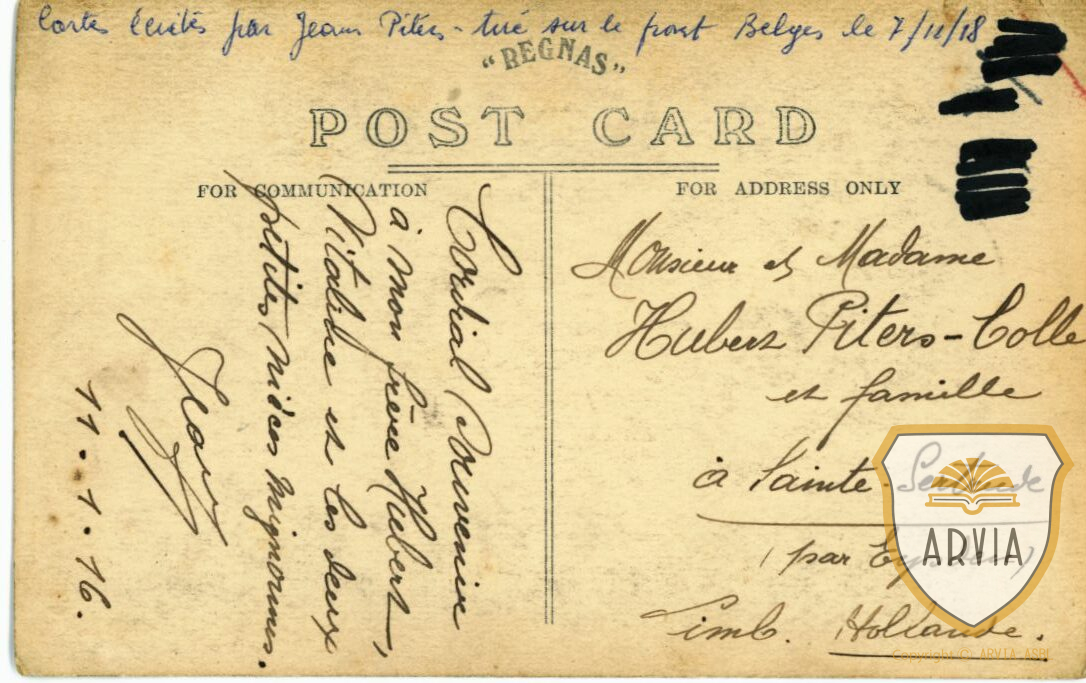 Cartes écrites par Jean Piters - tué sur le front Belges le 7/11/18
"REGNAS"
POST CARD
FOR COMMUNICATION
FOR ADDRESS ONLY
Cordial Souvenir
à mon frère Hubert,
et les deux
petites nièces mignonnes.
Jean
11.1.16.
Monsieur et Madame
Hubert Piters-Colle
et famille
à Sainte-
(par Eysden)
Limb. Hollande.
ARVIA
Copyright © ARVIA ASBL